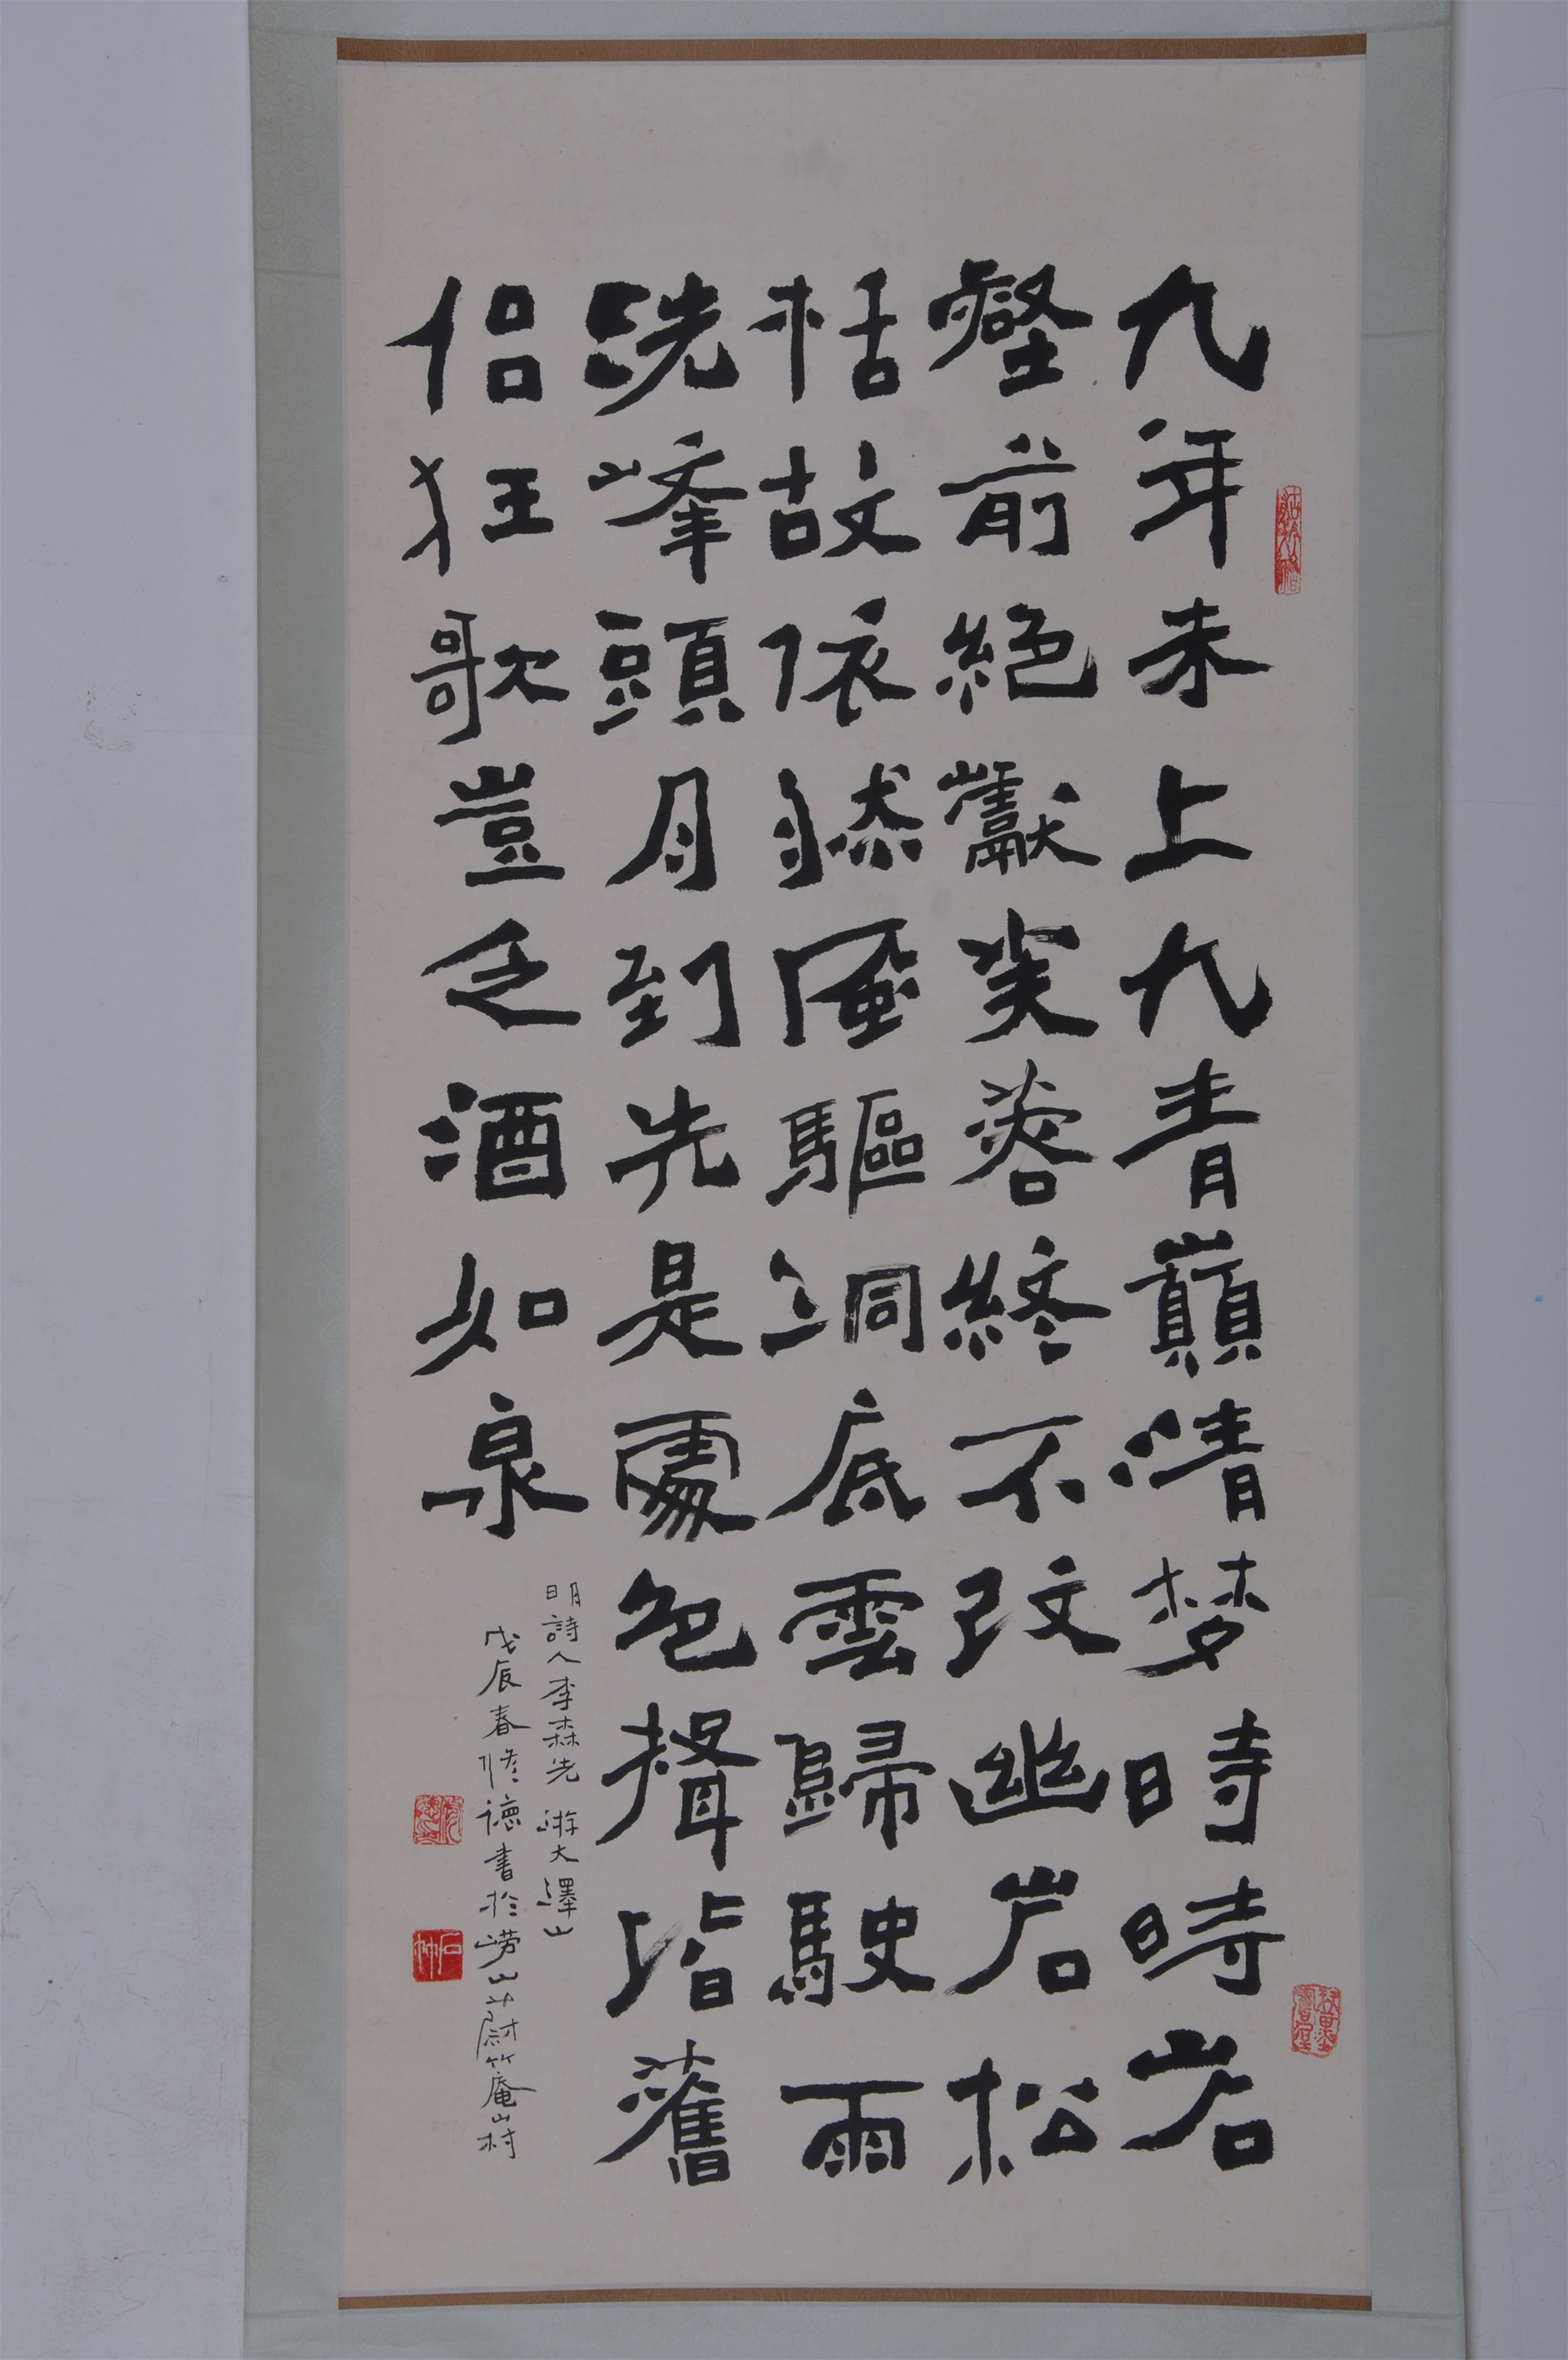 九年未上九青巔清梦時時岩
壑前絕巘芙蓉終不改幽岩松
栝故依然風驅洞底雲歸駛雨
洗峰頭月到先是處色聲皆舊
侶狂歌豈乏酒如泉
明詩人李森先遊大澤山
戊辰春修德書於嶗山蔚竹庵山村